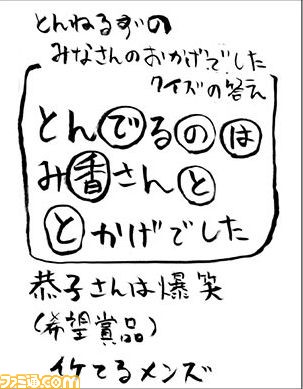 とんねるずの
みなさんのおかげでした
クイズの答え
とんでるのは
み香さんと
とかげでした
恭子さんは爆笑
(希望賞品)
イケてるメンズ
ファミ通.com